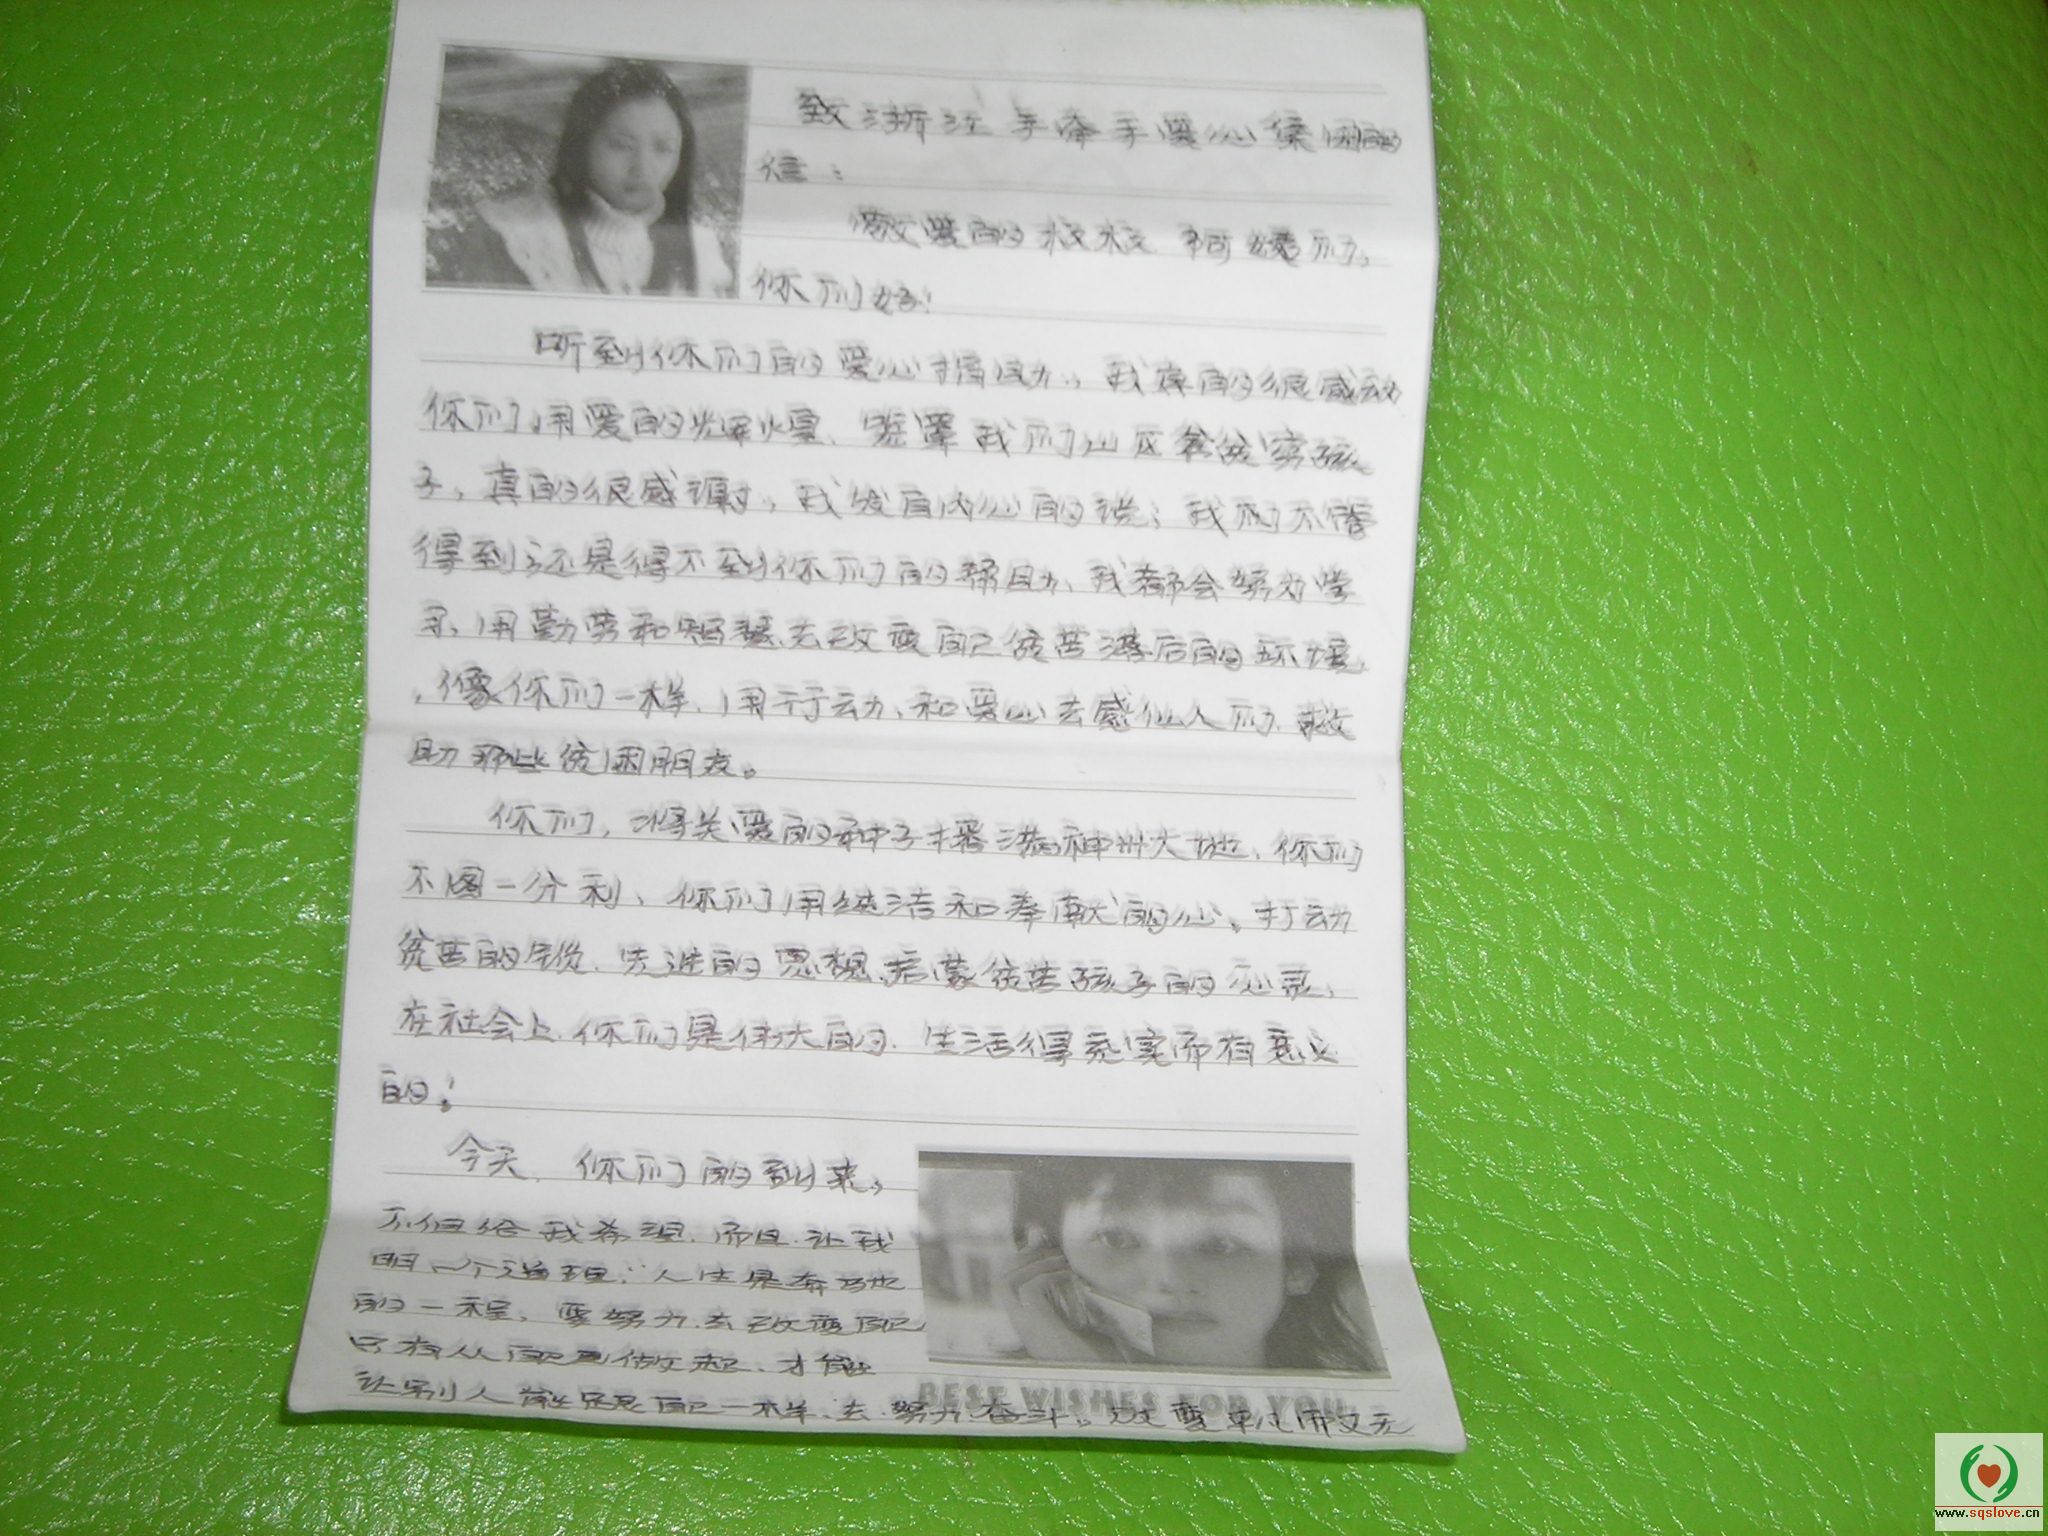 致浙江手牵手爱心集团的
信：
敬爱的叔叔 阿姨们，
你们好！
听到你们的爱心捐助，我真的很感动
你们用爱的光辉，笼罩我们山区贫穷孩
子，真的很感谢，我发自内心的说：我们不管
得到还是得不到你们的帮助、我都会努力学
习，用勤劳和智慧去改变自己贫苦落后的环境，
，像你们一样，用行动、和爱心去感化人们，救
助那些贫困朋友。
你们，将关爱的种子播满神州大地、你们
不图一分利、你们用纯洁和奉献的心。打动
贫苦的，先进的思想，启蒙贫苦孩子的心灵，
在社会上，你们是伟大的，生活得充实而有意义
的！
今天，你们的到来，
不但给我希望，而且，让我
明一个道理：人生是奔驰
的一程，要努力去改变自己
只有从自己做起、才能
让别人能跟自己一样，去努力奋斗。改变
BEST WISHES FOR YOU
www.sqslove.cn